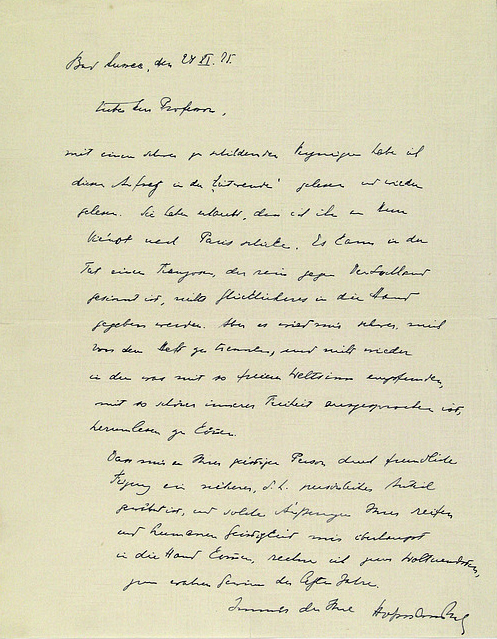 Bad Aussee, den 24 XI. 25.
Lieber Herr Professor,
mit einem schwer zu schildernden Vergnügen habe ich
diesen Aufsatz in der gelesen und wieder
gelesen. Sie haben erlaubt, dass ich ihn an Herrn
nach Paris schicke. Es kann in der
Tat einem Franzosen, der rein gegen Deutschland
gesinnt ist, nichts Glücklicheres in die Hand
gegeben werden. Aber es wird mir schwer, mich
von dem Heft zu trennen, und nicht wieder
in dem was mit so freiem Weltsinn empfunden,
mit so schöner innerer Freiheit ausgesprochen ist,
herumlesen zu können.
Dass mir an Ihrer geistigen Person durch freundliche
Fügung ein sicherer, d.h. persönlicher Anteil
gewährt ist, und solche Äußerungen Ihrer reifen
und humanen Geistigkeit mir überhaupt
in die Hand kommen, rechne ich zum
zum wahren Gewinn der Jahre.
Immer der Ihre Hofmannsthal